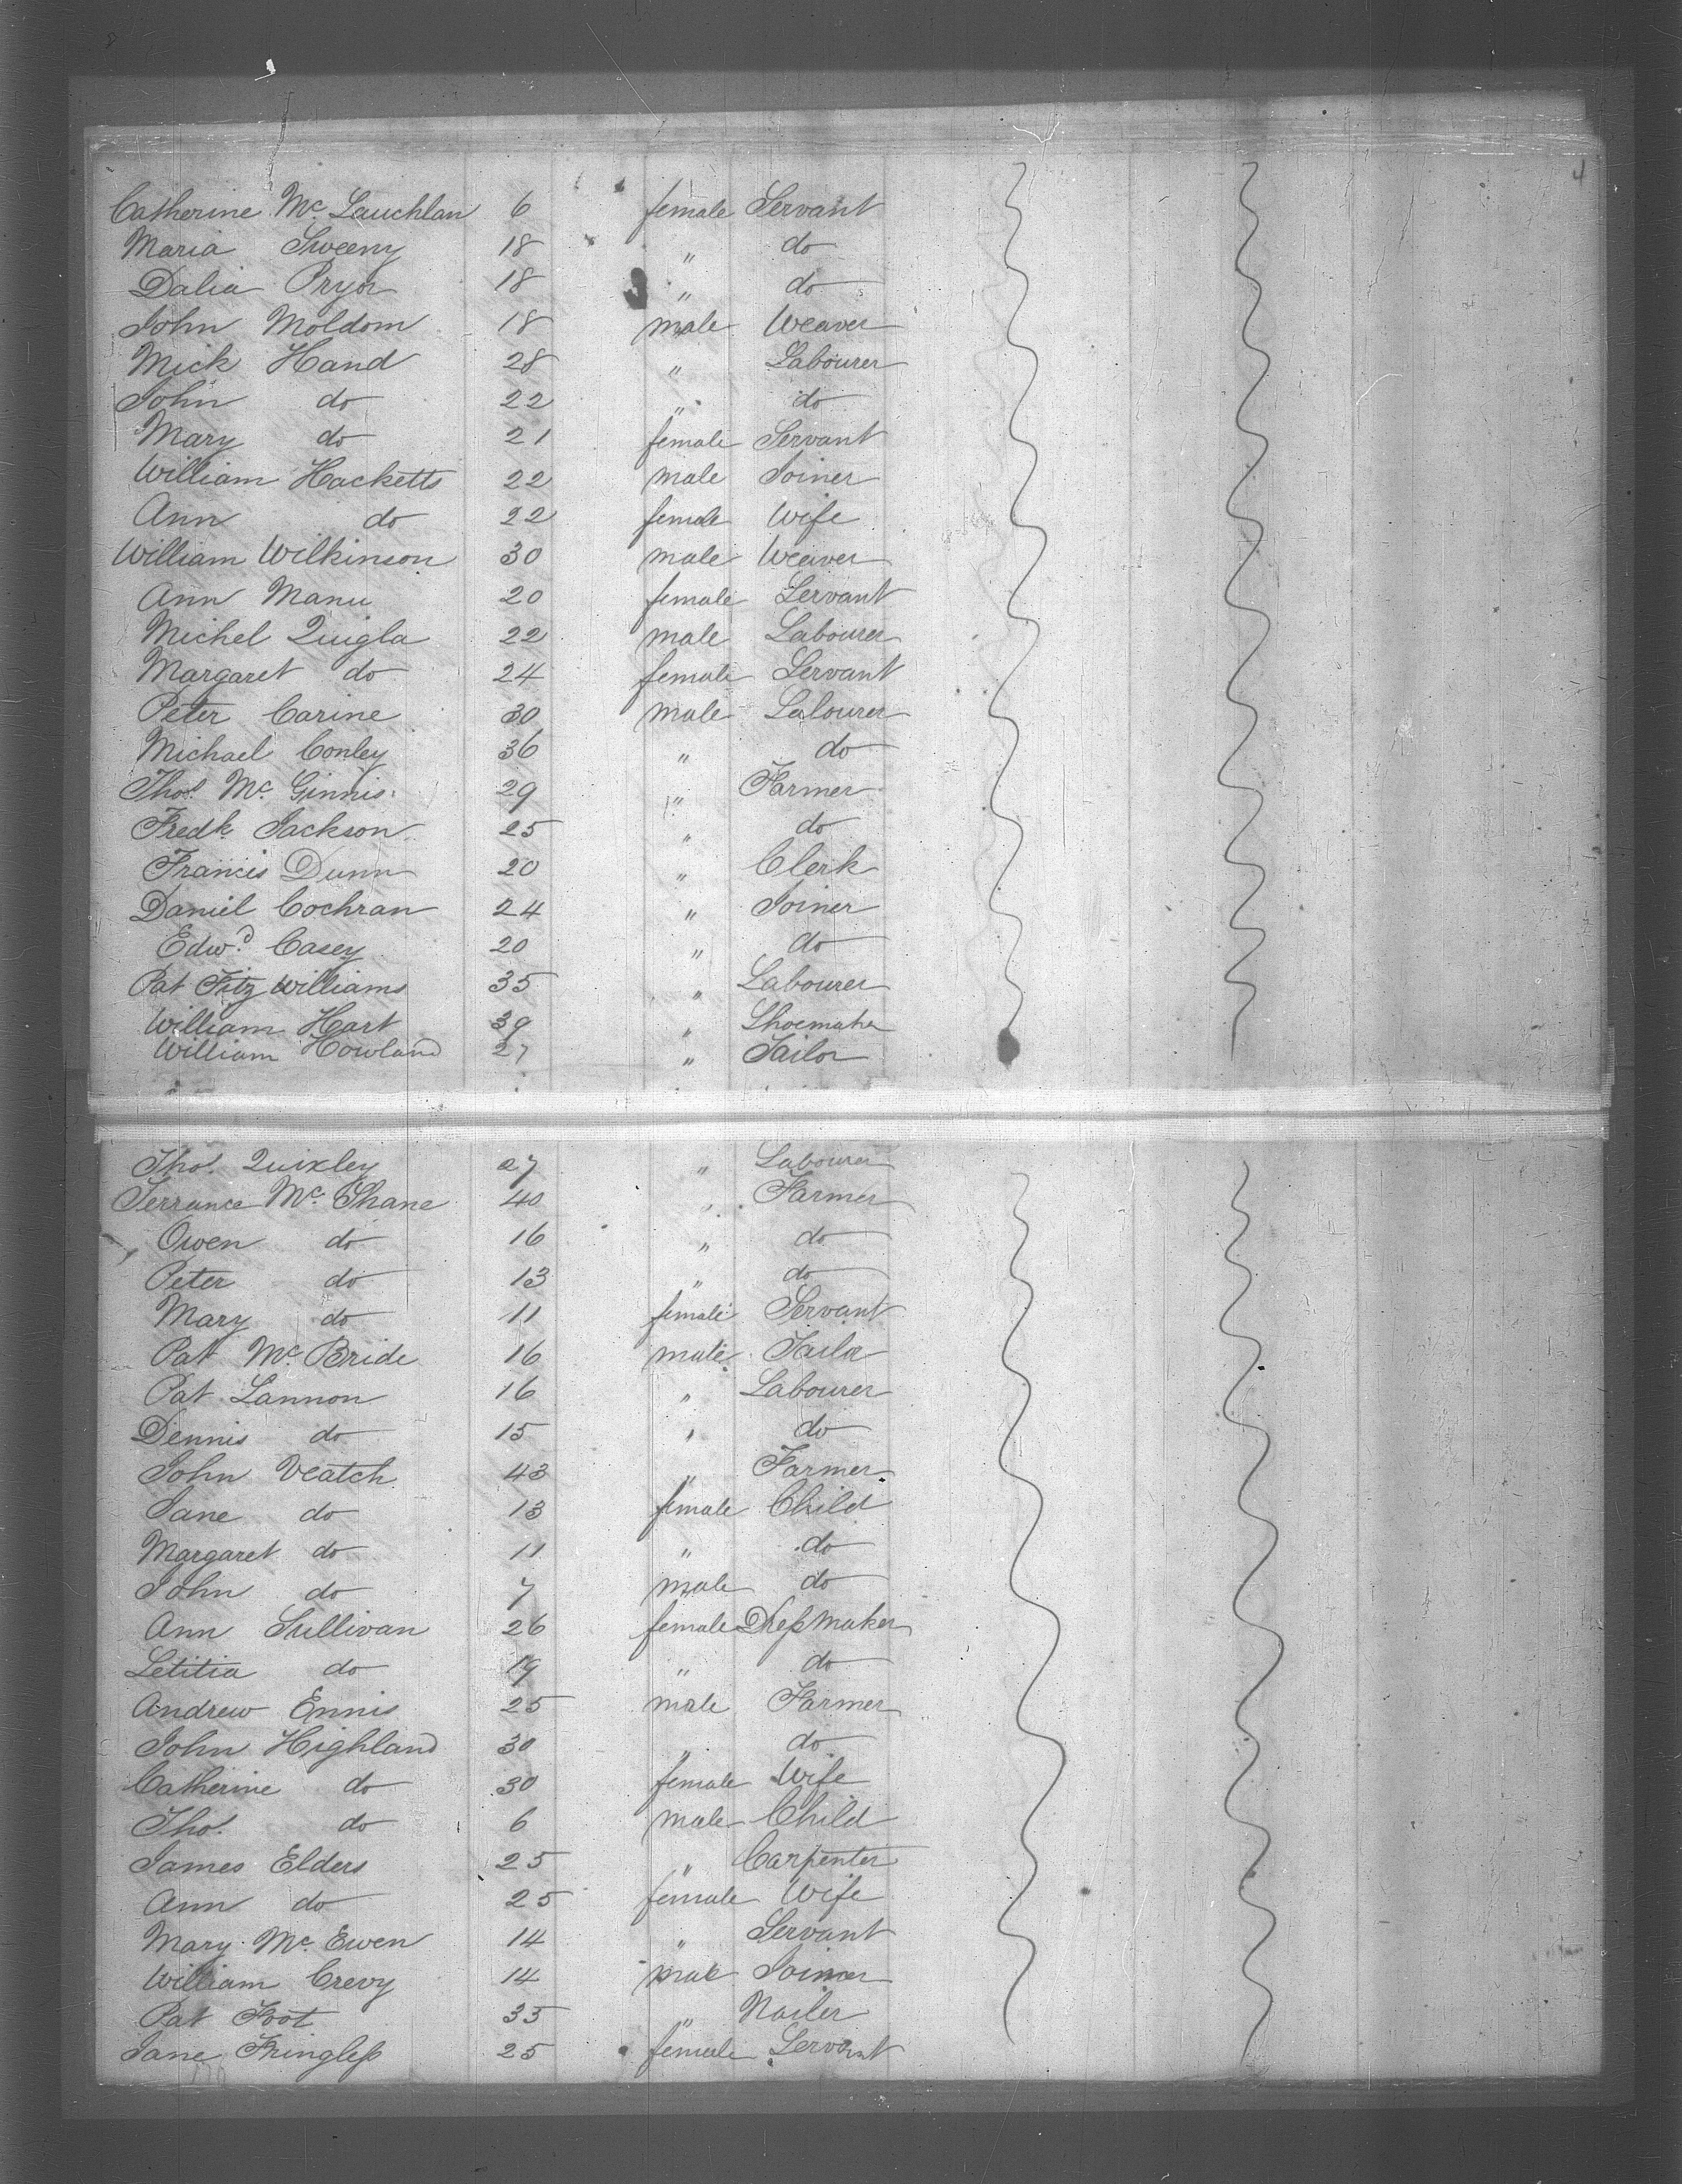 4
Catherine Mc. Lauchlan 6 female Servant
Maria Sweeny 18 " do
Dalia Pryor 18 " do
John Moldom 18 male Weaver
Mick Hand 28 " Labourer
John do 22 " do
Mary do 21 female Servant
William Hacketts 22 male Joiner
Ann do 22 female Wife
William Wilkinson 30 male Weaver
Ann Manu 20 female Servant
Michel Quigla 22 male Labourer
Margaret do 24 female Servant
Peter Carine 30 male Labourer
Michael Conley 36 " do
Thos. Mc. Ginnis 29 " Farmer
Fredk. Jackson 25 " do
Francis Dunn 20 " Clerk
Daniel Cochran 24 " Joiner
Edwd. Casey 20 " do
Pat Fitz Williams 35 " Labourer
William Hart 39 " Shoemaker
William Howland 27 " Tailor
Thos. Quixley 27 " Labourer
Terrance Mc. Shane 40 " Farmer
Owen do 16 " do
Peter do 13 " do
Mary do 11 female Servant
Pat Mc. Bride 16 male Tailor
Pat Lannon 16 " Labourer
Dennis do 15 " do
John Veatch 43 " Farmer
Jane do 13 female Child
Margaret do 11 " do
John do 7 male do
Ann Sullivan 26 female Dress Maker
Letitia do 19 " do
Andrew Ennis 25 male Farmer
John Highland 30 " do
Catherine do 30 female Wife
Thos. do 6 male Child
James Elders 25 " Carpenter
Ann do 25 female Wife
Mary Mc. Ewen 14 " Servant
William Crevy 14 male Joiner
Pat Foot 35 " Nailer
Jane Fringless 25 female Servant